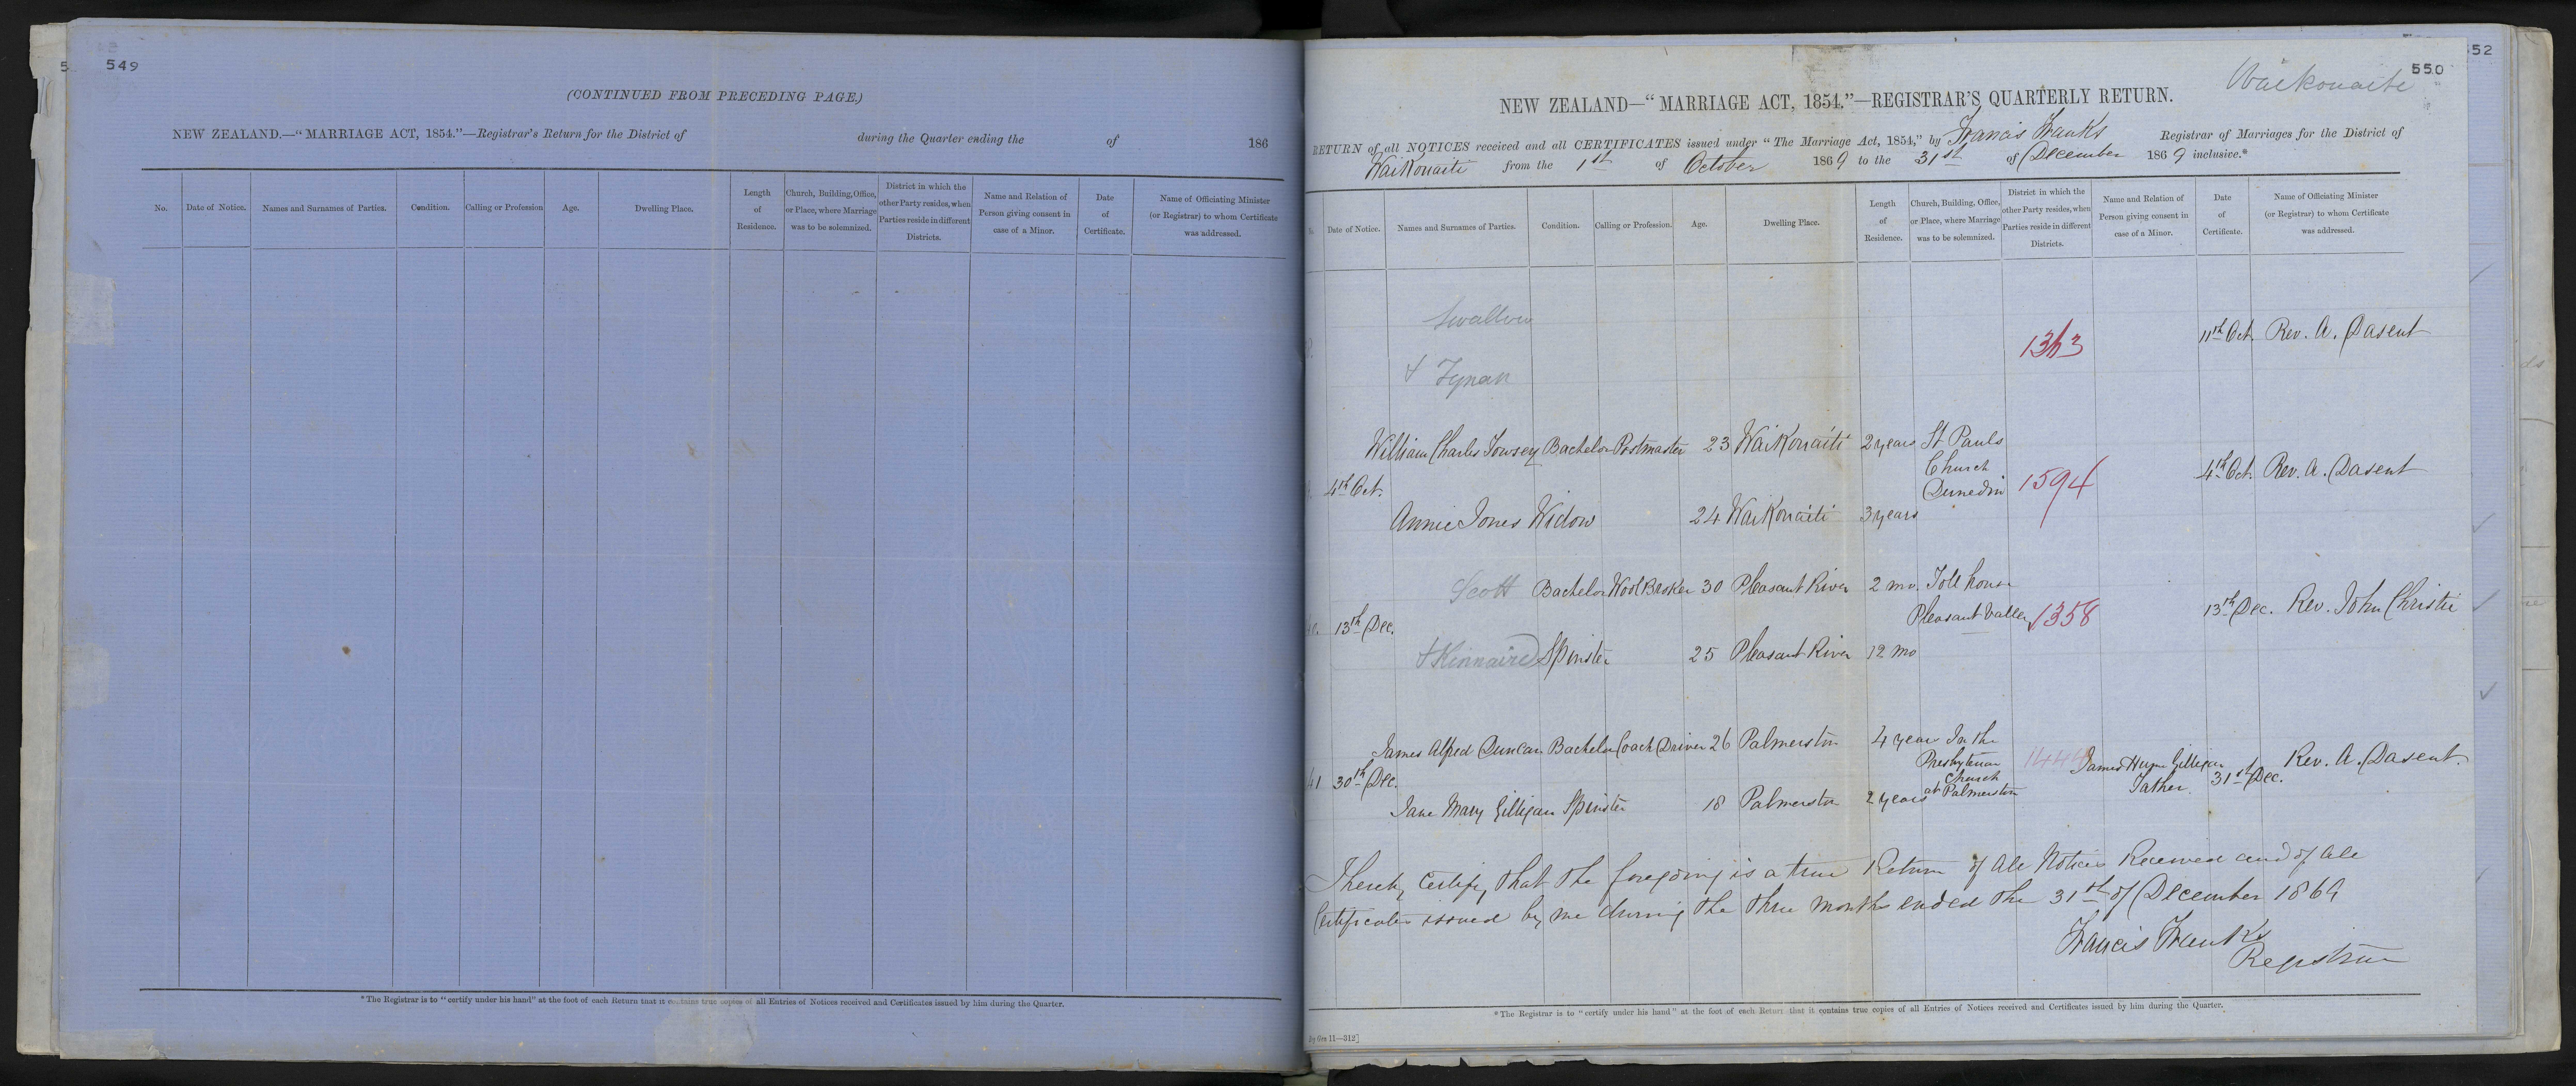 549
(CONTINUED FROM PRECEDING PAGE.)
NEW ZEALAND.—"MARRIAGE ACT, 1854."—Registrar's Return for the District of during the Quarter ending the of 186
No. Date of Notice. Names and Surnames of Parties. Condition. Calling or Profession Age. Dwelling Place. Length of Residence. Church, Building, Office, or Place, where Marriage was to be solemnized. District in which the other Party resides, when Parties reside in different Districts. Name and Relation of Person giving consent in case of a Minor. Date of Certificate. Name of Officiating Minister (or Registrar) to whom Certificate was addressed.
*The Registrar is to "certify under his hand" at the foot of each Return that it contains true copies of all Entries of Notices received and Certificates issued by him during the Quarter.
552
550
Waikouaite
NEW ZEALAND—"MARRIAGE ACT, 1854."—REGISTRAR'S QUARTERLY RETURN.
RETURN of all NOTICES received and all CERTIFICATES issued under "The Marriage Act, 1854," by Francis Franks Registrar of Marriages for the District of
Waikouaiti from the 1st of October 1869 to the 31st of December 1869 inclusive.*
Date of Notice. Names and Surnames of Parties. Condition. Calling or Profession. Age. Dwelling Place. Length of Residence. Church, Building, Office, or Place, where Marriage was to be solemnized. District in which the other Party resides, when Parties reside in different Districts. Name and Relation of Person giving consent in case of a Minor. Date of Certificate. Name of Officiating Minister (or Registrar) to whom Certificate was addressed.
Swallow
1363 11th Oct. Rev. A. Dasent
+ Fynan
William Charles Towsey Bachelor Postmaster 23 Waikouaiti 2 years St Pauls
Church
4th Oct. Dunedin 1594 4th Oct. Rev. A. Dasent
Annie Jones Widow 24 Waikouaiti 3 years
Scott Bachelor Wool Broker 30 Pleasant River 2 mo. Toll house
13th Dec. Pleasant Valley 1358 13th Dec. Rev. John Christie
+ Kinnaird Spinster 25 Pleasant River 12 mo
James Alfred Duncan Bachelor Coach Driver 26 Palmerston 4 year In the
Presbyterian
41 30th Dec. Church James Hume Gilligan Father. 31st Dec. Rev. A. Dasent.
at Palmerston
Jane Mary Gilligan Spinster 18 Palmerston 2 years
I hereby certify that the foregoing is a true Return of all Notices Received and of all
Certificates issued by me during the three months ended the 31st of December 1869
Francis Franks
Registrar
*The Registrar is to "certify under his hand" at the foot of each Return that it contains true copies of all Entries of Notices received and Certificates issued by him during the Quarter.
Gen 11—312]